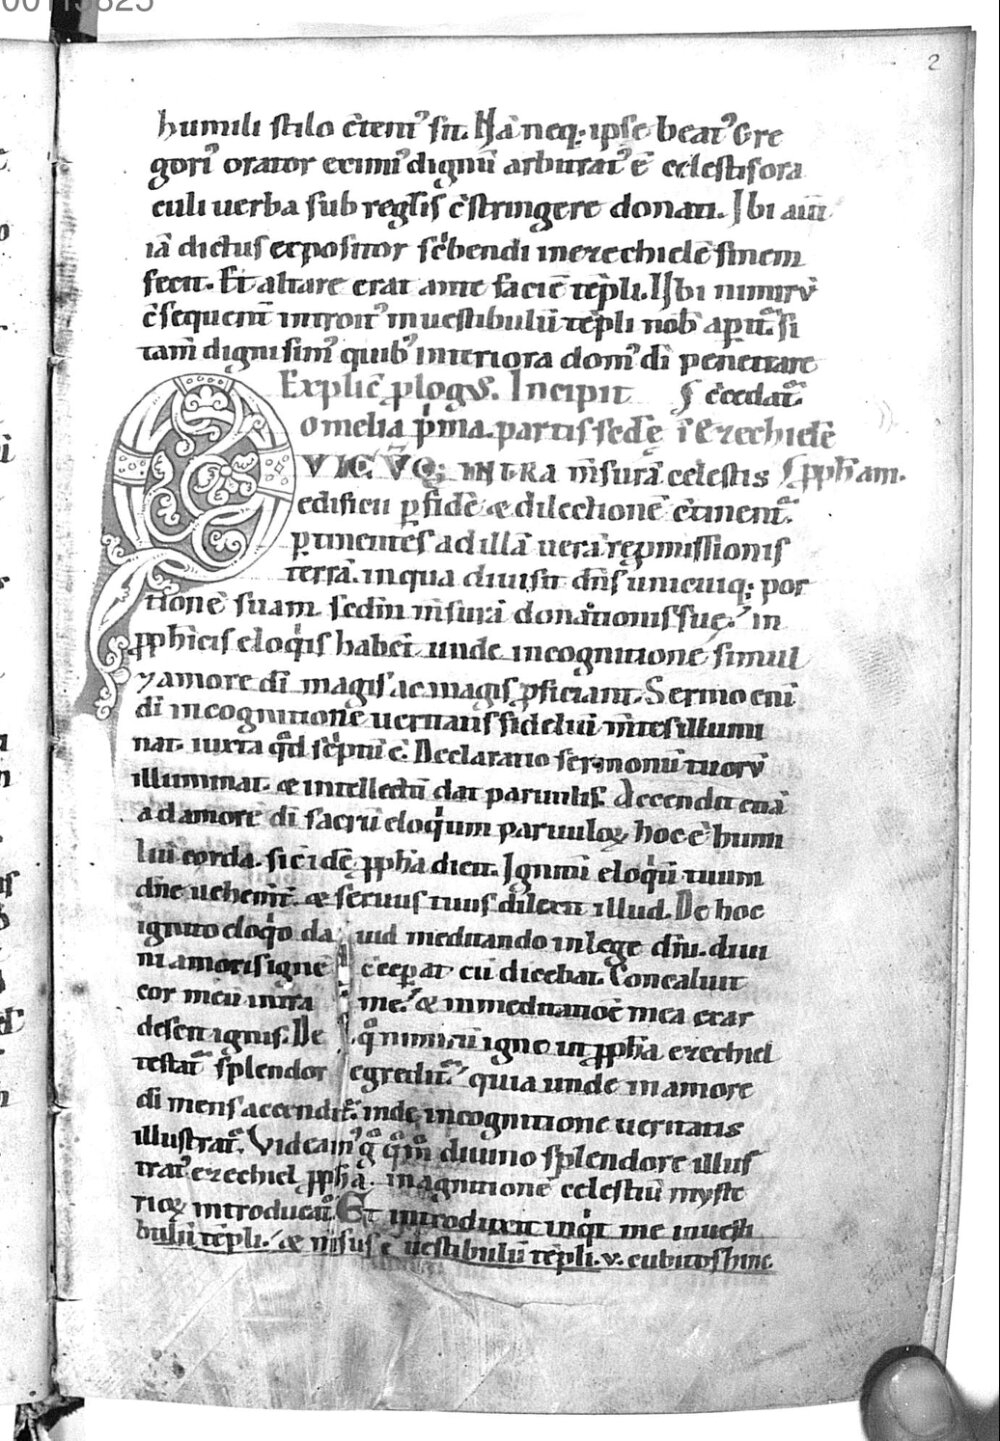 humili stilo c̄tent᾿ sit. Nā neq; ipse beat᾿ Gre
gori᾿ orator eximi᾿ dignū arbitrat᾿ ē celestis ora
culi uerba sub regul̄is c̄stringere donati. Ibi aut̄
iā dictus expositor sc̄bendi in ezechielē finem
fecit. Et altare erat ante faciē tēpli. Ibi nimirū
c̄sequent̄ introit᾿ in uestibulū tēpli nob̄ apit̄ si
tam̄ digni sim᾿ quib᾿ interiora dom᾿ di penetrare
Explic̄ plogus. Incipit ʃ c̄cedat̄.
omelia p̄ma. partis sedē ī Ezechielē
QVICVQ; INTRA m̄surā celestis ʃ pph̄am.
edificii p fidē & dilectionē c̄tinent̄.
ptinentes ad illā uerā repmissionis
terrā. in qua diuisit dn̄s unicuiq; por
tionē suam sedm̄ m̄surā donationis suę. in
pph̄icis eloqi̇s habet̄ unde in cognitionē simul
7 amore di magis ac magis pficiant. Sermo eni
di in cognitionē ueritatis fideliū m̄tes illumi
nat. iuxta qd̄ sc̄ptū ē. Declaratio sermonū tuorū
illuminat. & intellectū dat paruulis. Accendit etiā
ad amorē di sacrū eloqium paruuloꝝ hoc ē humi
liū corda. sic idē pph̄a dicit. Ignitū eloqiū tuum
dn̄e uehem̄t̄. & seruus tuus dilexit illud. De hoc
ignito eloqo dauid meditando in lege dn̄i. diui
ni amoris ignē c̄ceperat cū dicebat. Concaluit
cor meū intra me. & in meditatiōe mea exar
descit ignis. De q̄ nimirū igne ut pph̄a ezechiel
testat̄ splendor egredit̄. quia unde in amore
di mens accendit̄. inde in cognitione ueritatis
illustrat̄. Videam᾿ g° qm̄ diuino splendore illus
trat᾿ ezechiel pph̄a. in agnitionē celestiū myste
rioꝝ introducat̄. Et introduxit inqit me in uesti
bulū tēpli. & m̄sus ē uestibulū tēpli. v. cubitos hinc
2